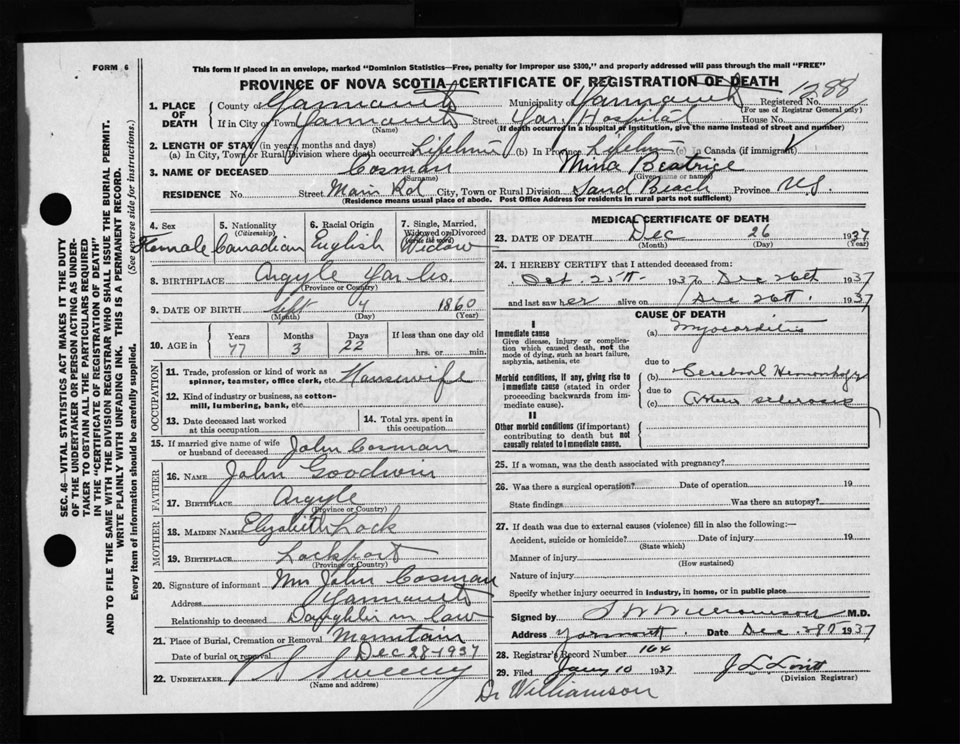 FORM 6
This form if placed in an envelope, marked "Dominion Statistics—Free, penalty for improper use $300," and properly addressed will pass through the mail "FREE"
PROVINCE OF NOVA SCOTIA—CERTIFICATE OF REGISTRATION OF DEATH
1388
1. PLACE OF DEATH
County of Yarmouth Municipality of Yarmouth Registered No.
(For use of Registrar General only)
If in City or Town Yarmouth Street Yar. Hospital House No.
(Name) (If death occurred in a hospital or institution, give the name instead of street and number)
2. LENGTH OF STAY (in years, months and days)
(a) In City, Town or Rural Division where death occurred Lifetime (b) In Province Lifetime (c) In Canada (if immigrant)
3. NAME OF DECEASED Cosman Mina Beatrice
(Surname) (Given name or names)
RESIDENCE No. Street Main Rd City, Town or Rural Division Sand Beach Province N.S.
(Residence means usual place of abode. Post Office Address for residents in rural parts not sufficient)
4. Sex
Female
5. Nationality
(Citizenship)
Canadian
6. Racial Origin
English
7. Single, Married, Widowed or Divorced
(write the word)
Widow
8. BIRTHPLACE Argyle Yar Co.
(Province or Country)
9. DATE OF BIRTH Sept 4 1860
(Month) (Day) (Year)
10. AGE in Years Months Days If less than one day old
77 3 22 hrs. or min.
OCCUPATION
11. Trade, profession or kind of work as spinner, teamster, office clerk, etc. Housewife
12. Kind of industry or business, as cotton-mill, lumbering, bank, etc.
13. Date deceased last worked at this occupation
14. Total yrs. spent in this occupation
15. If married give name of wife or husband of deceased John Cosman
FATHER
16. NAME John Goodwin
17. BIRTHPLACE Argyle
(Province or Country)
MOTHER
18. MAIDEN NAME Elizabeth Lock
19. BIRTHPLACE Lockport
(Province or Country)
20. Signature of informant Mrs John Cosman
Address Yarmouth
Relationship to deceased Daughter in law
21. Place of Burial, Cremation or Removal Mountain
Date of burial or removal Dec 28-1937
22. UNDERTAKER Sweeny
(Name and address)
MEDICAL CERTIFICATE OF DEATH
23. DATE OF DEATH Dec 26 1937
(Month) (Day) (Year)
24. I HEREBY CERTIFY that I attended deceased from:
Oct. 25th 1937 to Dec 26th 1937
and last saw her alive on Dec 26th 1937
CAUSE OF DEATH
I
Immediate cause
Give disease, injury or complication which caused death, not the mode of dying, such as heart failure, asphyxia, asthenia, etc
(a) Myocarditis
due to
Morbid conditions, if any, giving rise to immediate cause (stated in order proceeding backwards from immediate cause).
(b) Cerebral Hemorrhage
due to
(c) Arterio sclerosis
II
Other morbid conditions (if important) contributing to death but not causally related to immediate cause.
25. If a woman, was the death associated with pregnancy?
26. Was there a surgical operation? Date of operation 19
State findings Was there an autopsy?
27. If death was due to external causes (violence) fill in also the following:—
Accident, suicide or homicide? Date of injury 19
(State which)
Manner of injury
(How sustained)
Nature of injury
Specify whether injury occurred in industry, in home, or in public place
Signed by Williamson M.D.
Address Yarmouth Date Dec. 28th 1937
28. Registrar's Record Number 164
29. Filed Jany 10 1937 J L Lovitt
(Division Registrar)
Dr Williamson
SEC. 46—VITAL STATISTICS ACT MAKES IT THE DUTY
OF THE UNDERTAKER OR PERSON ACTING AS UNDER-
TAKER TO OBTAIN ALL THE PARTICULARS REQUIRED
IN THE "CERTIFICATE OF REGISTRATION OF DEATH"
AND TO FILE THE SAME WITH THE DIVISION REGISTRAR WHO SHALL ISSUE THE BURIAL PERMIT.
WRITE PLAINLY WITH UNFADING INK. THIS IS A PERMANENT RECORD.
Every item of information should be carefully supplied. (See reverse side for instructions.)